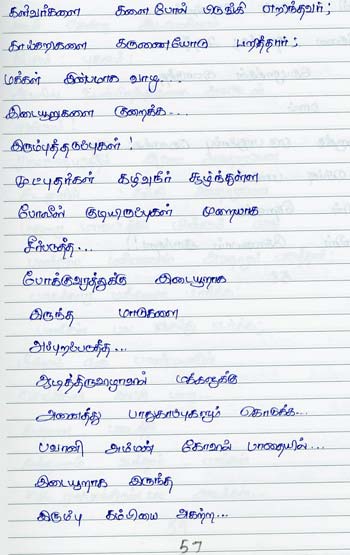 கள்வர்களை களைபோல் பிடுங்கி எறிந்தவர்;
காய்கறிகளை கருணையோடு பறித்தார்;
மக்கள் இன்பமாக வாழ...
இடையூறுகளை குறைக்க...
இரும்புத்தடுப்புகள்!
முட்புதர்கள் கழிவுநீர் சூழ்ந்துள்ள
போலீஸ் குடியிருப்புகள் முறையாக
சீர்படுத்த...
போக்குவரத்துக்கு இடையூறாக
இருந்த மாடுகளை
அப்புறப்படுத்த...
ஆடித்திருவிழாவின் மக்களுக்கு
அனைத்து பாதுகாப்புகளும் கொடுக்க...
பவானி அம்மன் கோவில் பாதையில்...
இடையூறாக இருந்த
இரும்பு கம்பியை அகற்ற...
57